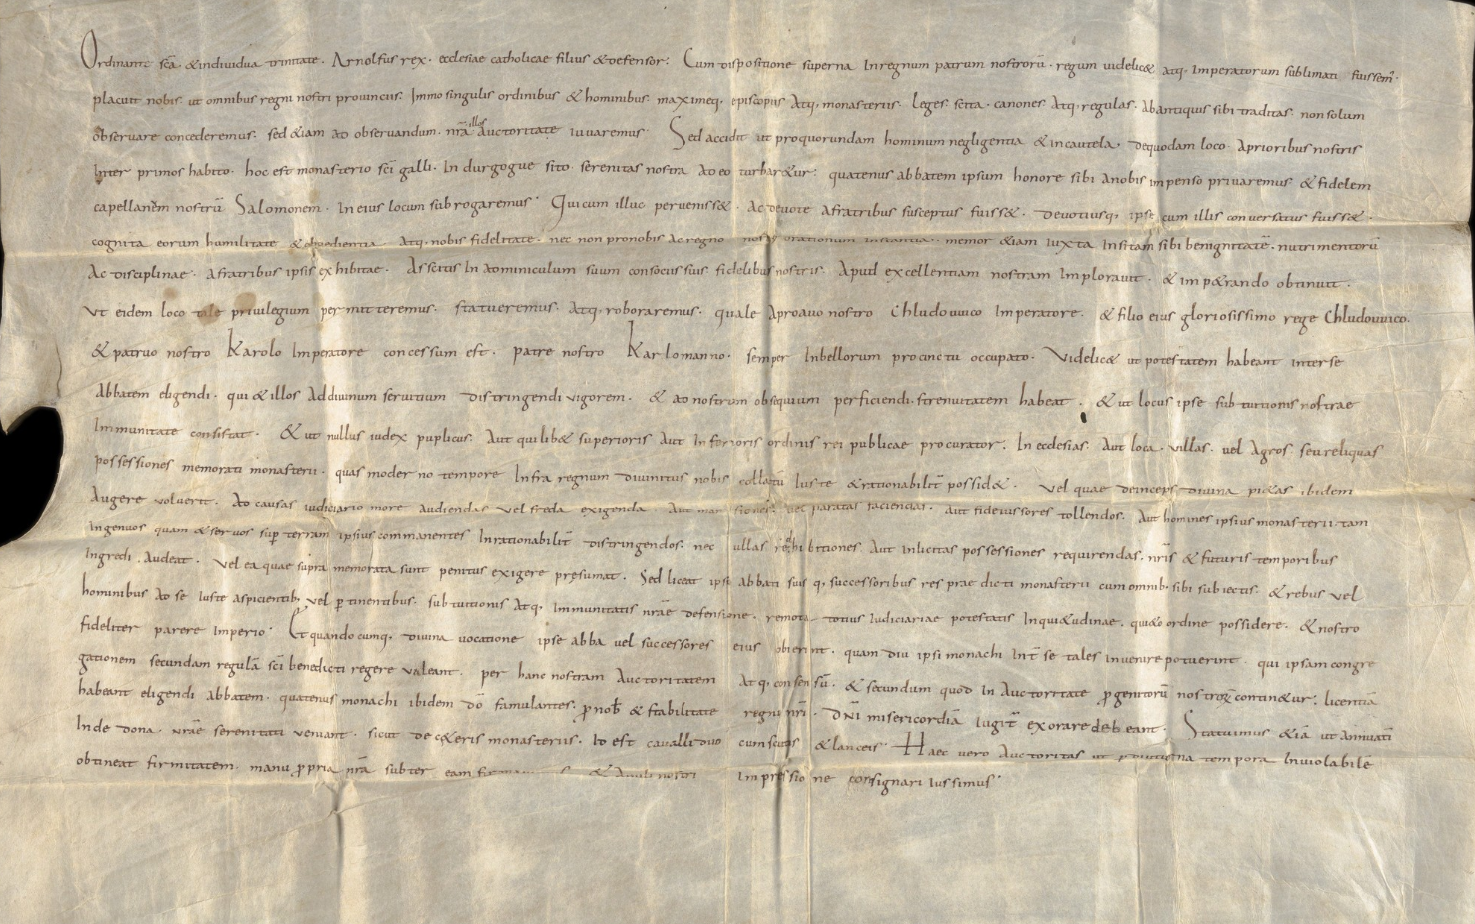 Ordinante scā · & individua trinitate · Arnolfus rex · ecclesiae catholicae filius & defensor · Cum dispositione superna In regnum patrum nostrorū · regum videlic& atq; Imperatorum sublimati fuissem᾽ ·
placuit nobis · ut omnibus regni nostri provinciis · Immo singulis ordinibus & hominibus · maximeq; episcopiis Atq; monasteriis · Leges · scita · canones · Atq; regulas · Ab antiquis sibi traditas · non solum
observare concederemus · sed &iam ad observandum · nrā illos Auctoritate iuvaremus · Sed accidit ut pro quorundam hominum negligentia & incautela · de quodam loco · A prioribus nostris
Inter primos habito · hoc est monasterio scī galli · In durgogue sito · serenitas nostra Ad eo turbar&ur · quatenus abbatem ipsum honore sibi A nobis impenso privaremus · & fidelem
capellanem nostrū Salomonem · In eius locum subrogaremus · Qui cum illuc perveniss& · Ac devote A fratribus susceptus fuiss& · devotiusq; ipse cum illis conversatus fuiss& ·
cognita eorum humilitate & oboedientia Atq; nobis fidelitate · nec non pro nobis Ac regno nostro orationum instantia · memor &iam iuxta Insitam sibi benignitatē · nutrimentorū
Ac disciplinae · A fratribus ipsis exhibitae · Ascitis In Adminiculum suum consociis suis fidelibus nostris · Apud excellentiam nostram Imploravit · & imp&rando obtinuit ·
Ut eidem loco tale privilegium permitteremus · statueremus · Atq; roboraremus · quale A proavo nostro Chludouuico Imperatore · & filio eius gloriosissimo rege Chludouuico ·
& patruo nostro Karolo Imperatore concessum est · patre nostro Karlomanno · semper In bellorum procinctu occupato · Videlic& ut potestatem habeant inter se
Abbatem eligendi · qui & illos Ad divinum servitium distringendi vigorem · & ad nostrum obsequium perficiendi · strenuitatem habeat · & ut locus ipse sub tuitionis nostrae
Immunitate consistat · & ut nullus iudex puplicus · Aut quilib& superioris Aut Inferioris ordinis rei publicae procurator · In ecclesias · Aut loca · villas · vel Agros · seu reliquas
possessiones memorati monasterii · quas moderno tempore Infra regnum divinitus nobis collatū Iuste & rationabilit̄ possid& · Vel quae deinceps divina pi&as ibidem
Augere voluerit · Ad causas iudiciario more Audiendas vel freda exigenda Aut mansiones · vel paratas faciendas · Aut fideiussores tollendos · Aut homines ipsius monasterii tam
Ingenuos quam & servos sup̄ terram ipsius commanentes Inrationabilit̄ distringendos · nec ullas redhibitiones · Aut Inlicitas possessiones requirendas · nrīs & futuris temporibus
Ingredi Audeat · Vel ea quae supra memorata sunt penitus exigere presumat · Sed liceat ipsi abbati suisq; successoribus res praedicti monasterii cum omnib; sibi subiectis · & rebus vel
hominibus Ad se Iuste aspicientib; vel p̄tinentibus · sub tuitionis Atq; Immunitatis nrāe defensione · remota totius Iudiciariae potestatis Inqui&udinae · qui&o ordine possidere · & nostro
fideliter parere Imperio · Et quandocumq; divina vocatione ipse abba vel successores eius obierint · quam diu ipsi monachi Int̄ se tales invenire potuerint · qui ipsam congre
gationem secundam regulā scī benedicti regere valeant · per hanc nostram Auctoritatem Atq; consensū · & secundum quod In Auctoritate p̄genitorū nostrorū contin&ur · licentiā
habeant eligendi abbatem · quatenus monachi ibidem dō famulantes · p̄ nob̄ & stabilitate regni nrī · dnī misericordiā Iugit̄ exorare debeant · Statuimus &iā ut Annuatī
Inde dona vrāe serenitati veniant · sicut de c&eris monasteriis · Id est cavalli duo cum scutis & lanceis · Haec vero Auctoritas ut p̄ diuturna tempora Inviolabile
obtineat firmitatem · manu p̄pria nrā subter eam firmavimus & Anuli nostri Impressione consignari iussimus ·